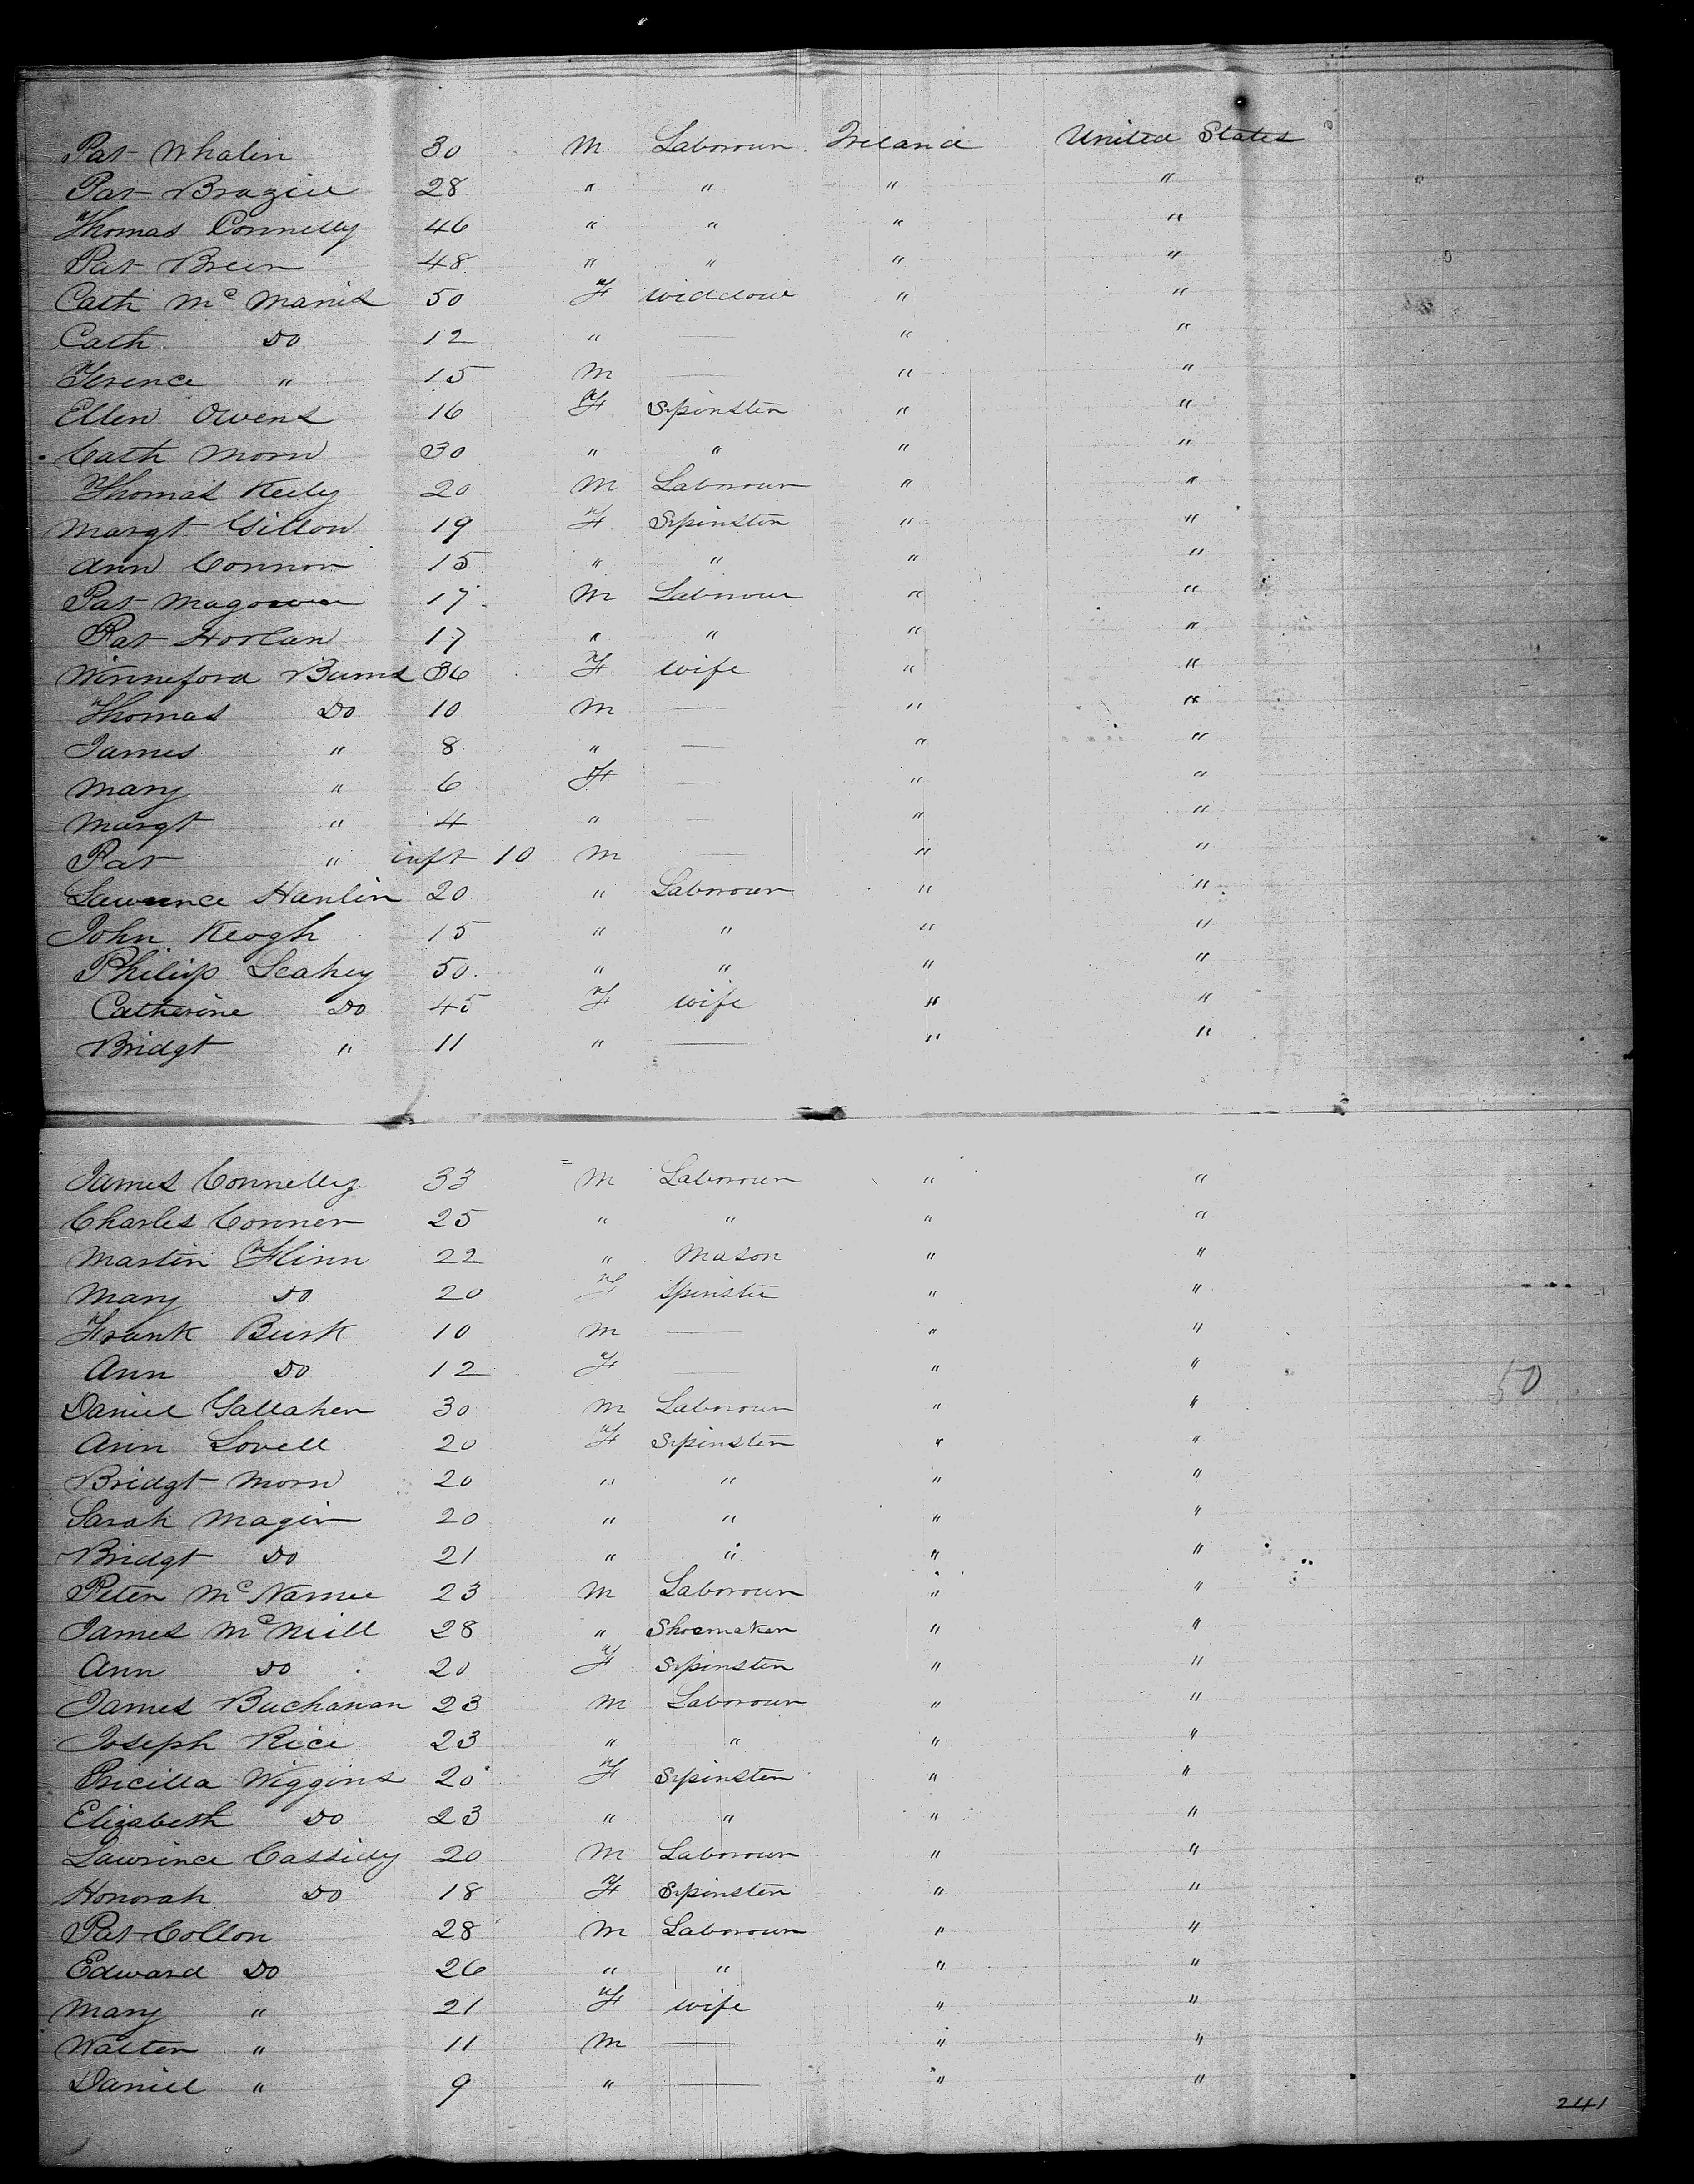 Pat Whalin 30 M Labourer Ireland United States
Pat Brazill 28 " " " "
Thomas Connelly 46 " " " "
Pat Breen 48 " " " "
Cath McManis 50 F widdow " "
Cath Do 12 " — " "
Terence " 15 M — " "
Ellen Owens 16 F Spinster " "
Cath Morn 30 " " " "
Thomas Keely 20 M Labourer " "
Margt Gillon 19 F Spinster " "
Ann Connor 15 " " " "
Pat Magowan 17 M Labourer " "
Pat Horlan 17 " " " "
Winneford Burns 36 F wife " "
Thomas Do 10 M — " "
James " 8 " — " "
Mary " 6 F — " "
Margt " 4 " — " "
Pat " inft 10 M — " "
Lawrence Hanlin 20 " Labourer " "
John Keogh 15 " " " "
Philip Leahey 50 " " " "
Catherine Do 45 F wife " "
Bridgt " 11 " — " "
James Connelly 33 M Labourer " "
Charles Conner 25 " " " "
Martin Flinn 22 " Mason " "
Mary Do 20 F Spinster " "
Frank Burk 10 M — " "
Ann Do 12 F — " "
50
Daniel Gallaher 30 M Labourer " "
Ann Lovell 20 F Spinster " "
Bridgt Morn 20 " " " "
Sarah Magin 20 " " " "
Bridgt Do 21 " " " "
Peter McNamee 23 M Labourer " "
James McNeill 28 " Shoemaker " "
Ann Do 20 F Spinster " "
James Buchanan 23 M Labourer " "
Joseph Rice 23 " " " "
Pricilla Wiggins 20 F Spinster " "
Elizabeth Do 23 " " " "
Lawrince Cassidy 20 M Labourer " "
Honorah Do 18 F Spinster " "
Pat Collon 28 M Labourer " "
Edward Do 26 " " " "
Mary " 21 F wife " "
Walter " 11 M — " "
Daniel " 9 " — " "
241